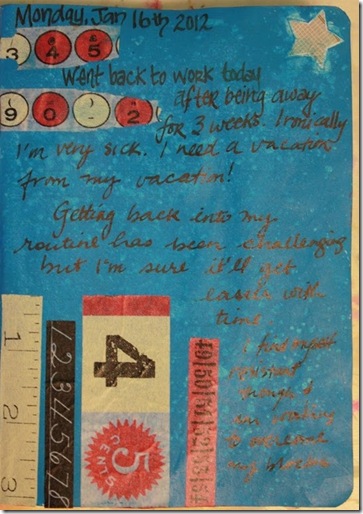 Monday, Jan 16th 2012
3 4 5
Went back to work today
9 0 2
after being away
for 3 weeks. Ironically
I'm very sick. I need a vacation
from my vacation!
Getting back into my
routine has been challenging
but I'm sure it'll get
easier with
time.
I find myself
resistant
though I
am working
to
my
1
2
3
1 2 3 4 5 6 7 8
4
5
CENTS
49 50 51 52 53 54